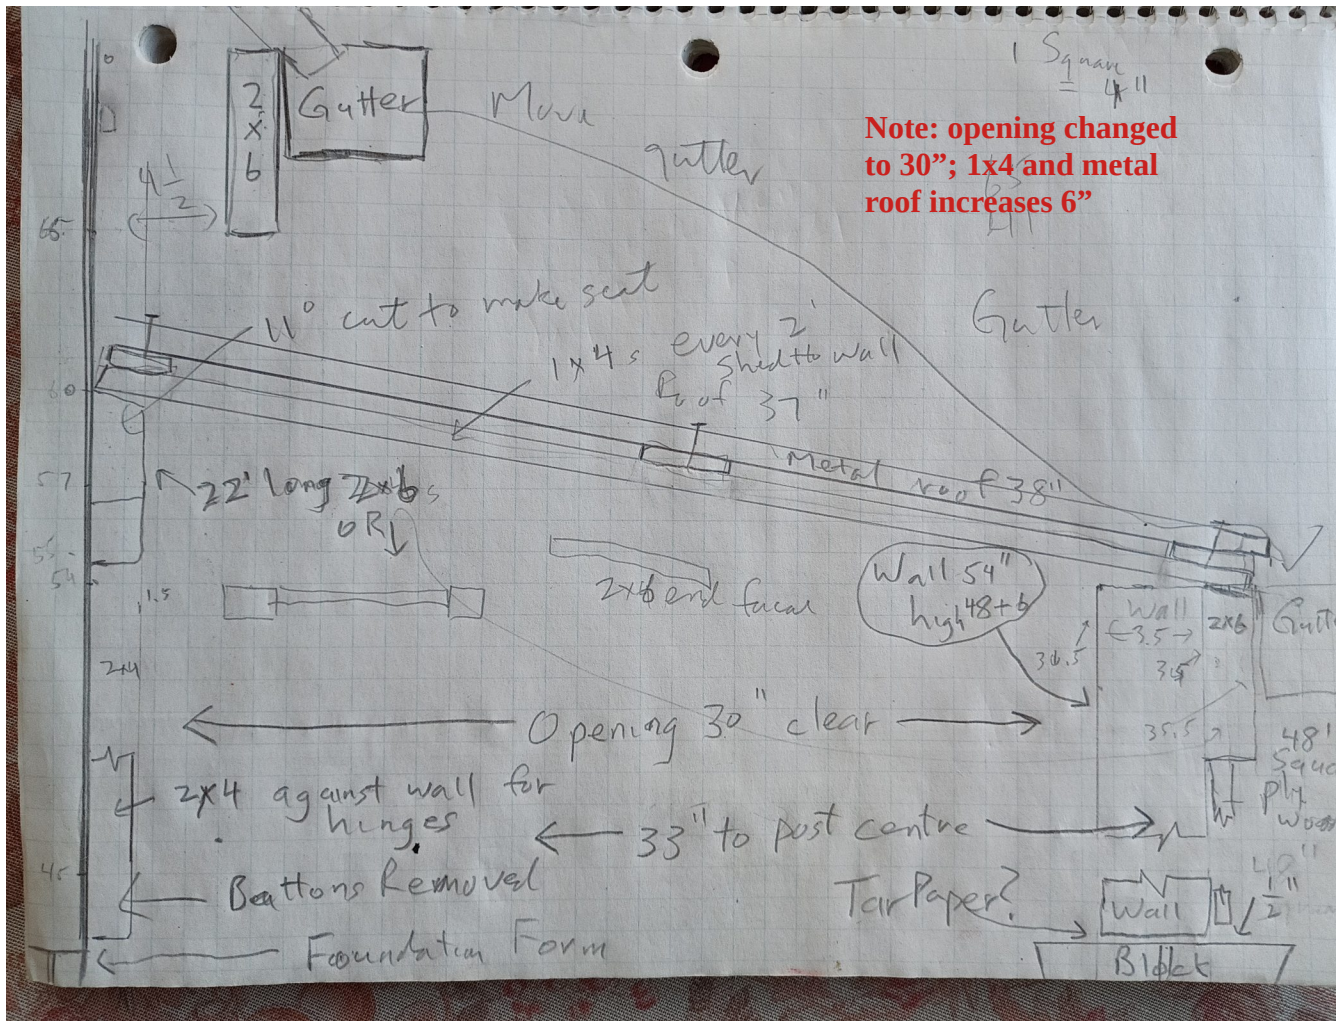 1 Square
= 4"
2
x
6
Gutter
Move
gutter
Note: opening changed
to 30”; 1x4 and metal
roof increases 6”
4 1/2
65
Gutter
11° cut to make seat
1x4s every 2'
Shed to wall
Roof 37"
60
Metal roof 38"
57
22' long 2x6s
OR
55
54
1.5
2x6 end facal
Wall 54"
high 48+6
Wall
3.5
2x6
Gutt
36.5
3.5
2x4
Opening 30" clear
35.5
48"
Squa
Ply
woo
2x4 against wall for
hinges
33" to post centre
45
Beattons Removed
Tar Paper?
Wall
1/2"
Foundation Form
Block